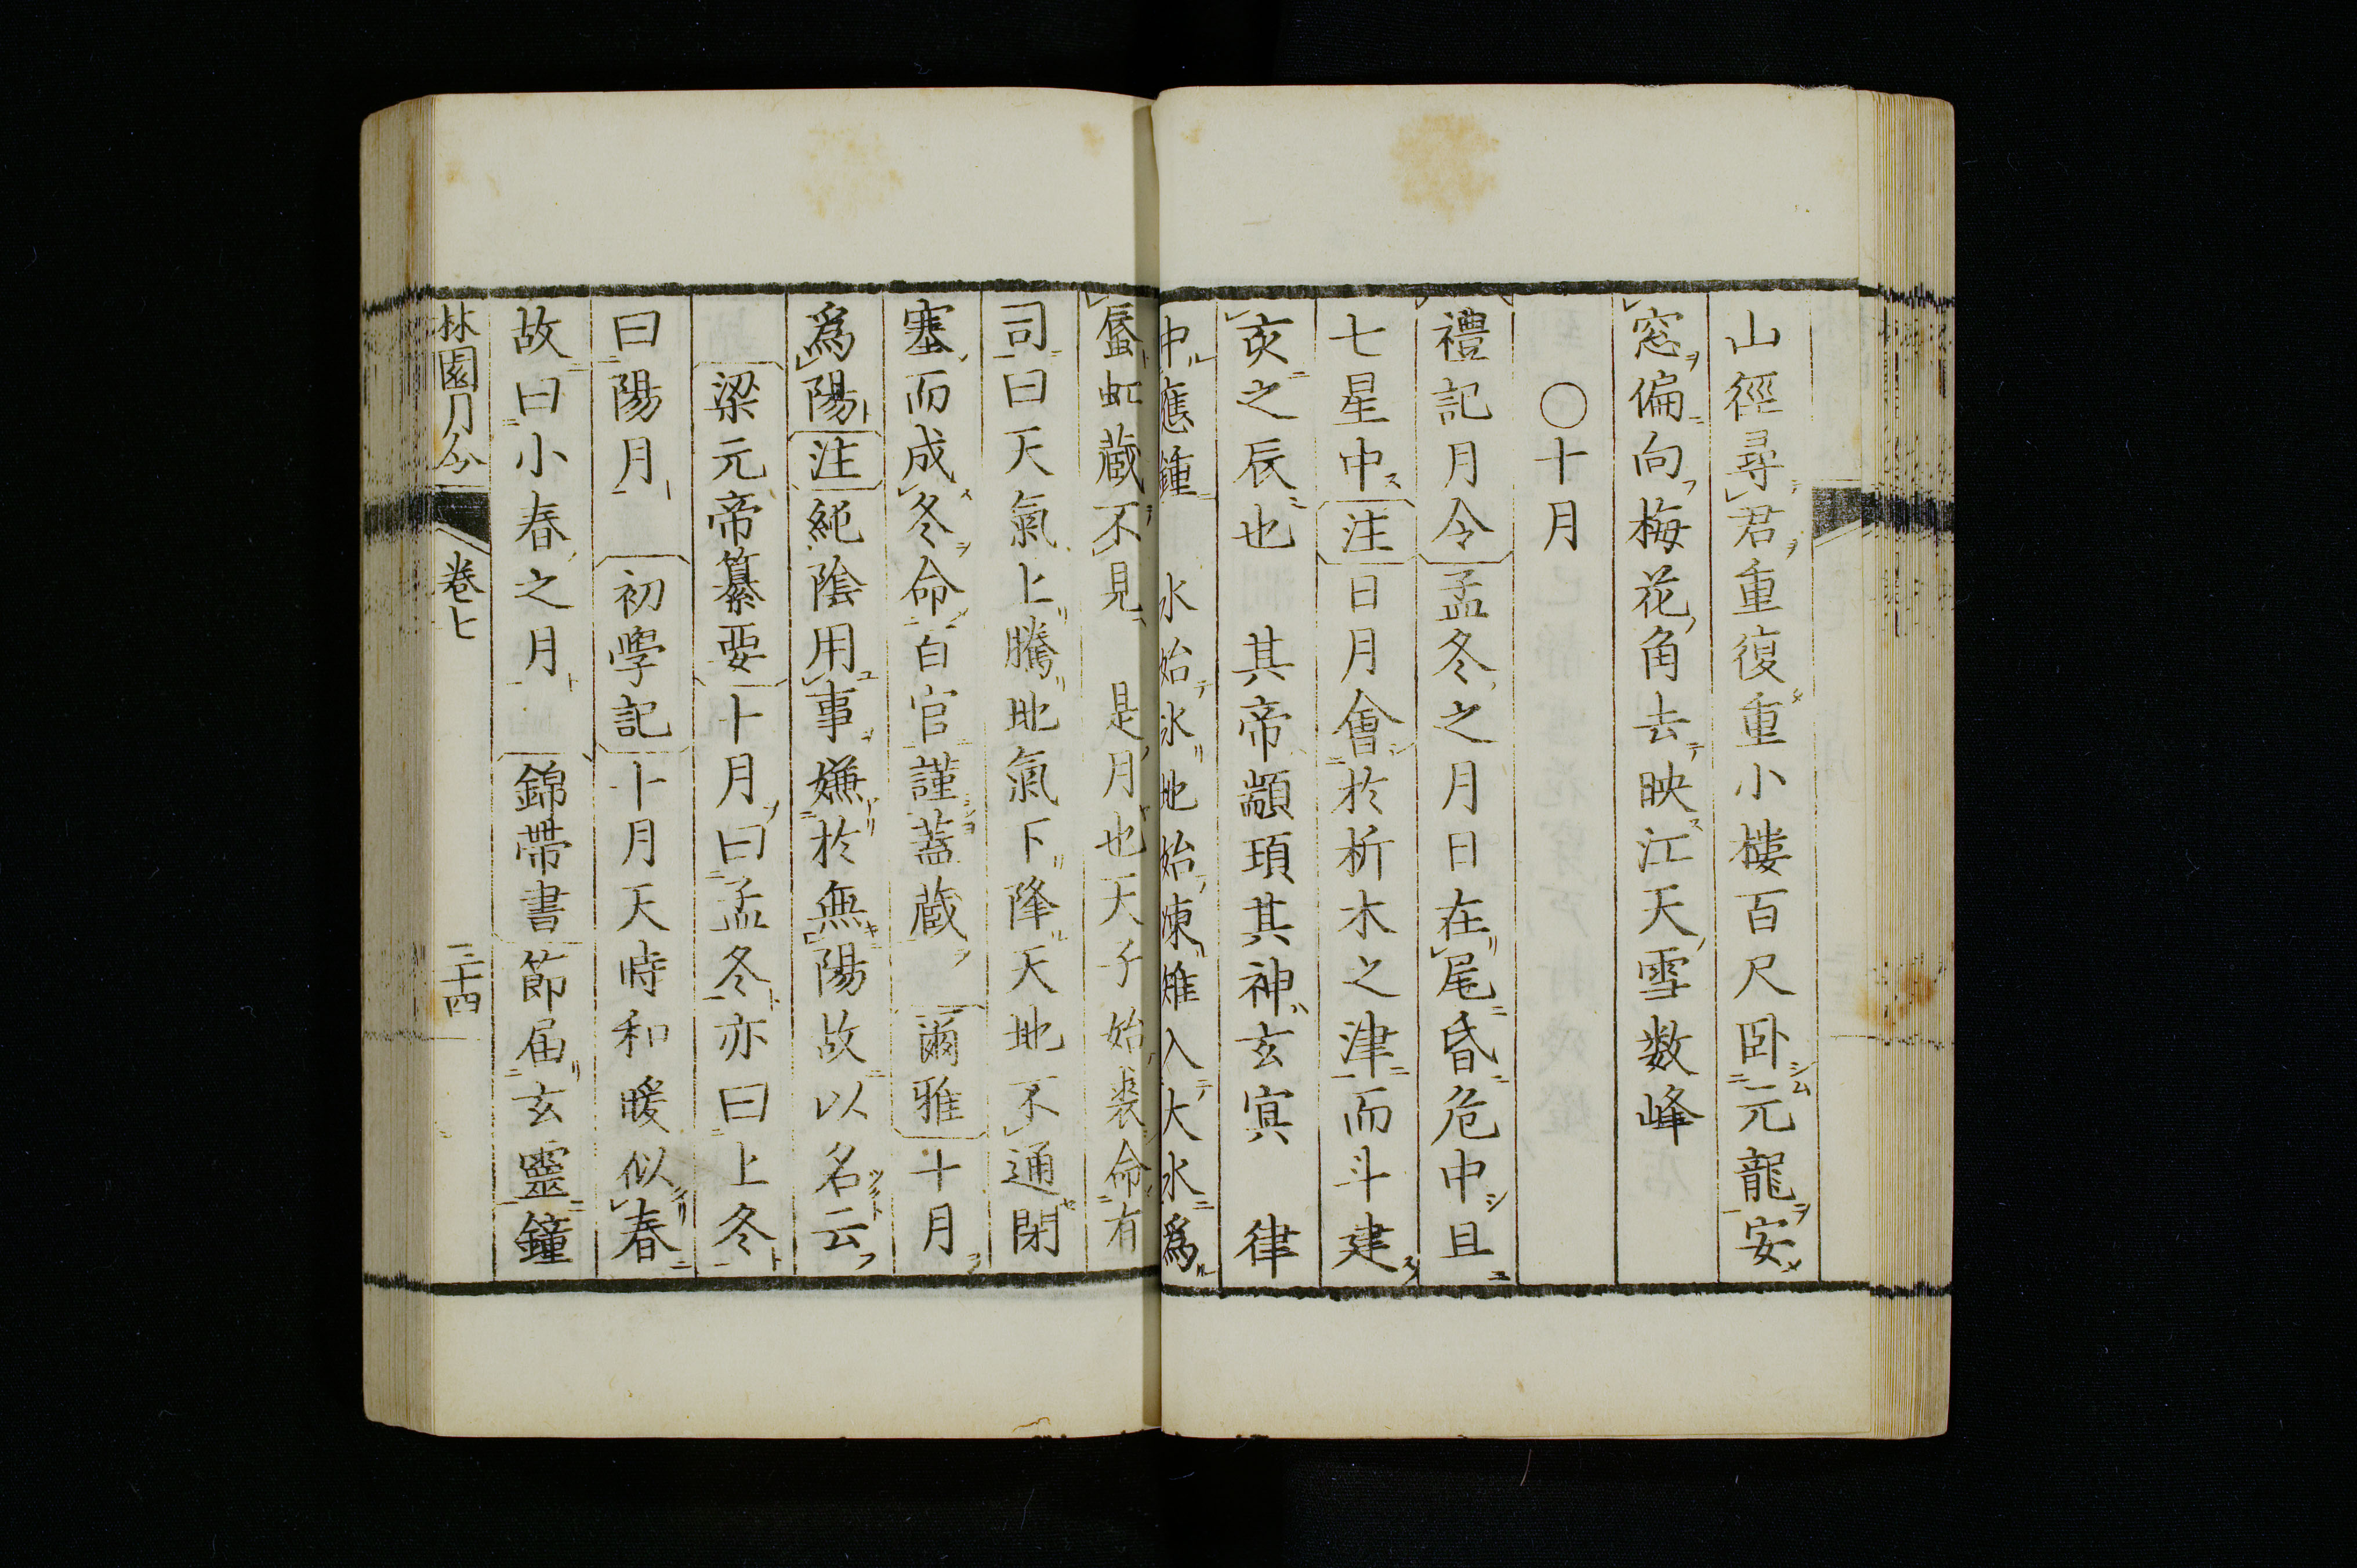 山徑尋君重復重小樓百尺卧元龍安
窓偏向梅花角去映江天雪数峰
○十月
禮記月令孟冬之月日在尾昏危中旦
七星中注日月會於析木之津而斗建
亥之辰也 其帝顓頊其神玄冥 律
中應鍾 水始氷地始凍雉入大水爲
蜃虹蔵不見 是月也天子始裘命有
司曰天氣上騰地氣下降天地不通閉
塞而成冬命百官謹蓋蔵 爾雅十月
爲陽注純隂用事嫌於無陽故以名云
梁元帝纂要十月曰孟冬亦曰上冬
曰陽月 初學記十月天時和暖似春
故曰小春之月 錦帶書節届玄靈鐘
林園月令 卷七 三十四